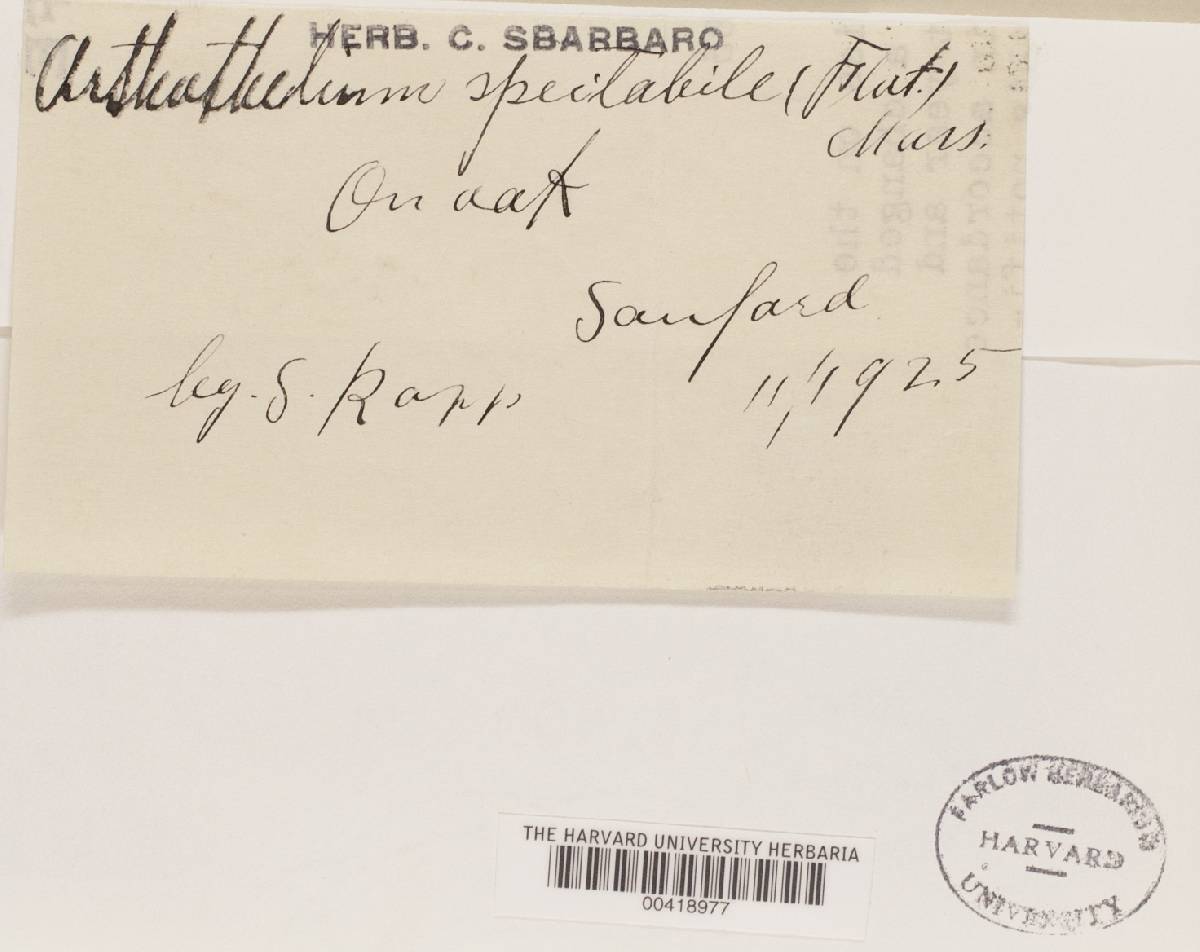 HERB. C. SBARBARO
Arthothelium speitabile (Flot.)
Mars.
On oak
Sanford
leg. S. Rapp 11/1925
the
anged
er and
accordance
THE HARVARD UNIVERSITY HERBARIA
00418977
FARLOW HERBARIUM
HARVARD
UNIVERSITY